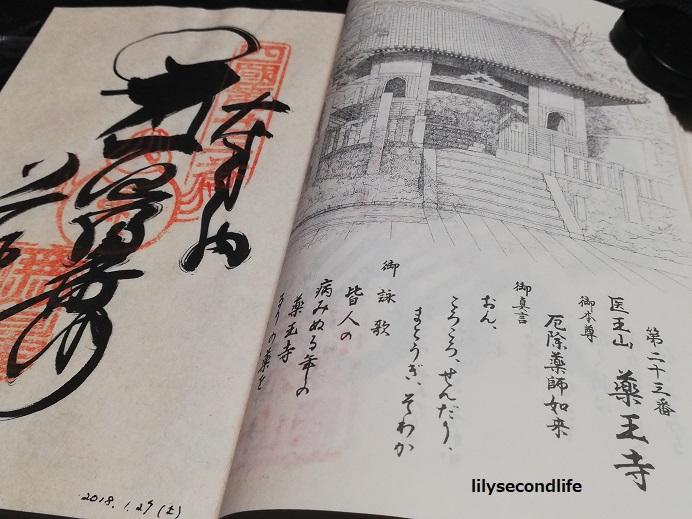 第二十三番
医王山 薬王寺
御本尊
厄除薬師如来
御真言
おん、
ころころ、せんだり、
まとうぎ、そわか
御詠歌
皆人の
病みぬる年の
薬王寺
るりの薬を
奉納
2018.1.27(土)
lilysecondlife